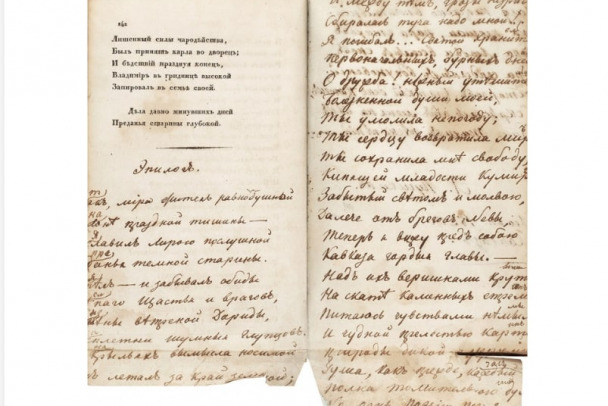 Лишенный силы чародѣйства,
Былъ принятъ карла во дворецъ;
И бѣдствій празднуя конецъ,
Владиміръ въ гридницѣ высокой
Запировалъ въ семьѣ своей.
Дѣла давно минувшихъ дней
Преданья старины глубокой.
Эпилогъ.
такъ, міра житель равнодушной
На лонѣ праздной тишины —
Я славилъ лирою послушной
Преданья темной старины.
Я пѣлъ — и забывалъ обиды
Слѣпаго щастья и враговъ,
Измѣны вѣтреной Дориды,
сплетни шумныя глупцовъ.
На крыльяхъ вымысла носимой
леталъ за край земной;
Сбиралась туча надо мной...
Я погибалъ... Святой хранитель
первоначальныхъ, бурныхъ дней
О дружба! нѣжный утѣшитель
болѣзненной души моей,
Ты умолила непогоду;
Ты сердцу возвратила миръ
Ты сохранила мнѣ свободу
Кипящей младости кумиръ
Забытый свѣтомъ и молвою,
Далече отъ бреговъ Невы,
Теперь я вижу предъ собою
Кавказа гордыя главы.
Надъ ихъ вершинами крутыми
На скатѣ каменныхъ стремнинъ
Питаюсь чувствами нѣмыми
И чудной прелестью картинъ
природы дикой
Душа, какъ прежде, каждый часъ
полна томительною